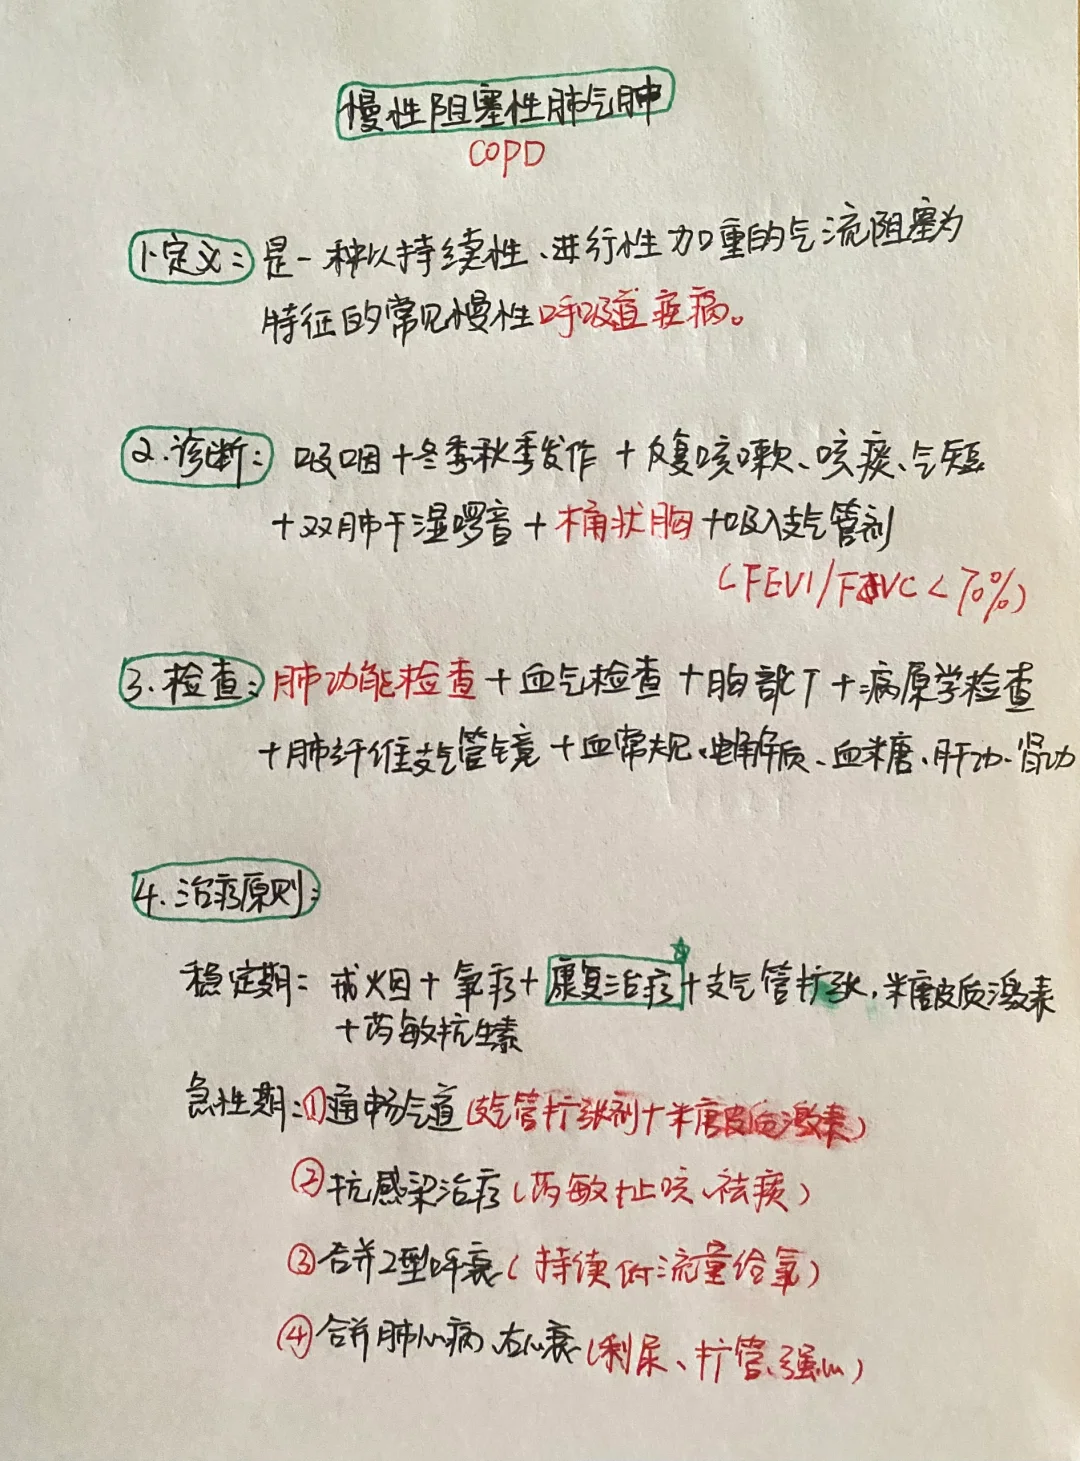 慢性阻塞性肺气肿
COPD
1.定义: 是一种以持续性、进行性加重的气流阻塞为
特征的常见慢性呼吸道疾病。
2.诊断: 吸烟+冬季秋季发作+反复咳嗽、咳痰、气短
+双肺干湿啰音+桶状胸+吸入支气管剂
(FEV1/FVC<70%)
3.检查: 肺功能检查+血气检查+胸部CT+病原学检查
+肺纤维支气管镜+血常规、电解质、血糖、肝功、肾功
4.治疗原则:
稳定期: 戒烟+氧疗+康复治疗+支气管扩张,糖皮质激素
+药敏抗生素
急性期:①通畅气道(支气管扩张剂+糖皮质激素)
②抗感染治疗(药敏 止咳、祛痰)
③合并2型呼衰(持续低流量给氧)
④合并肺心病、右心衰(利尿、扩管、强心)